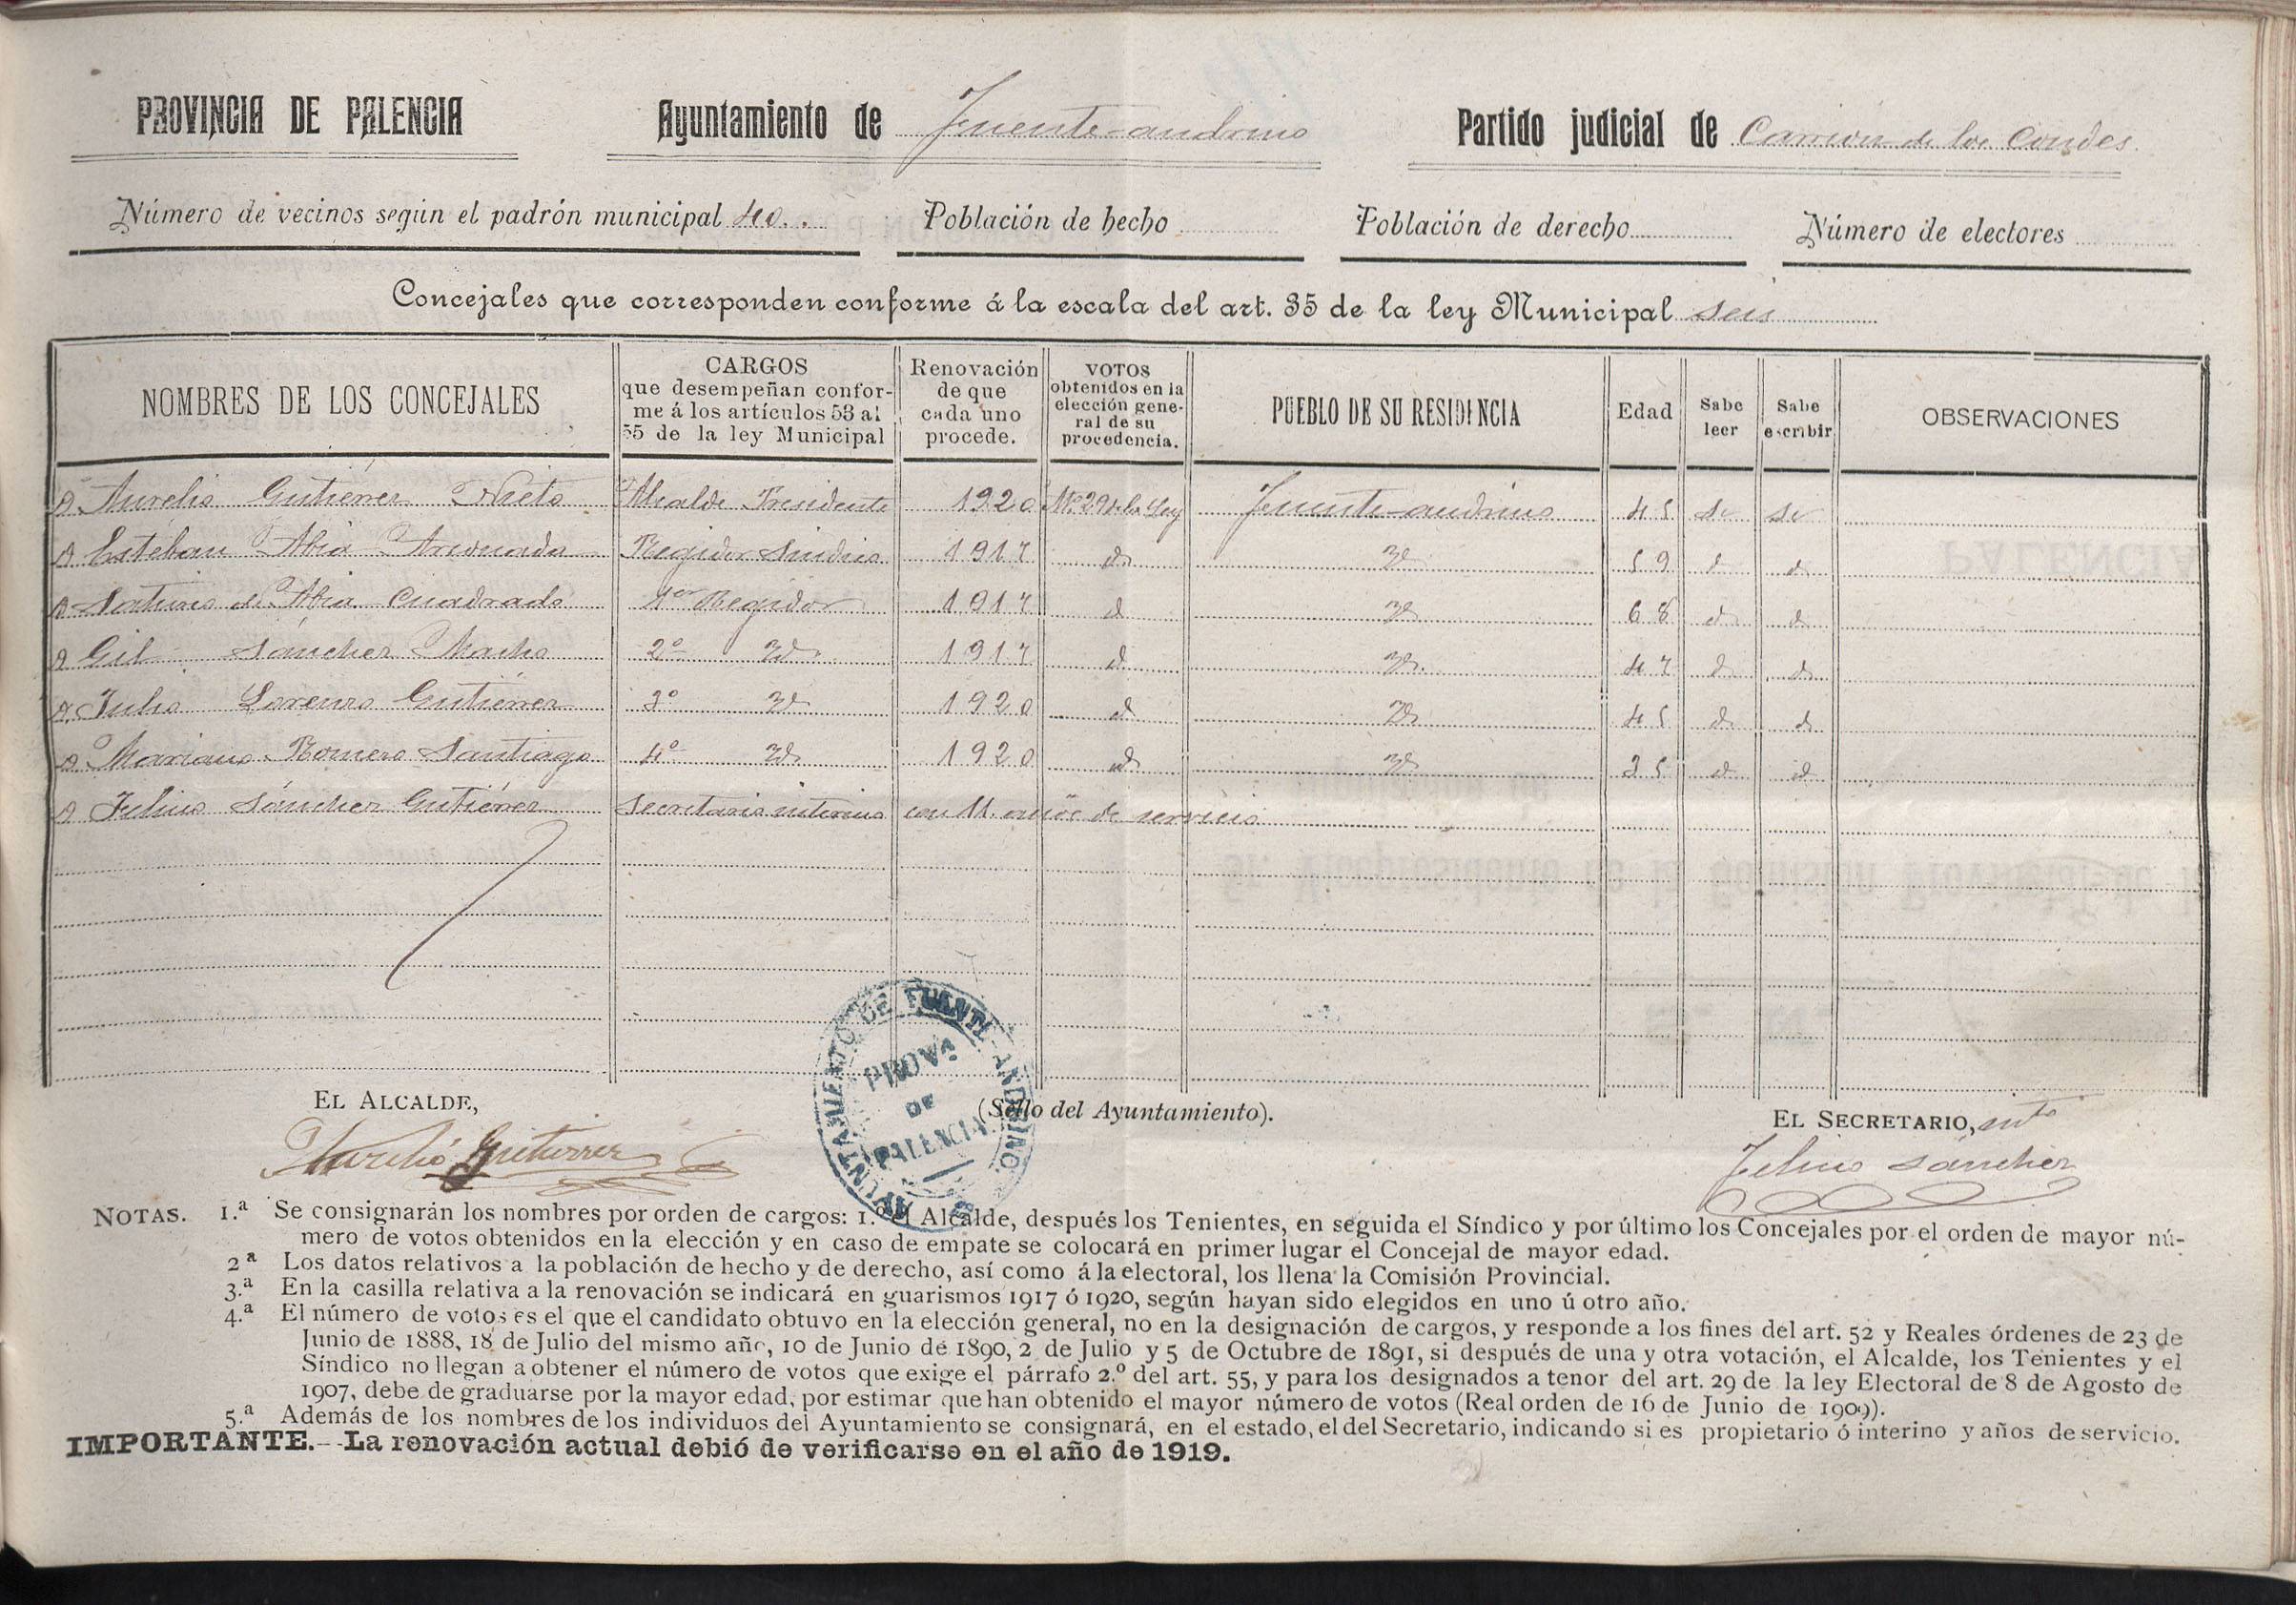 PROVINCIA DE PALENCIA Ayuntamiento de Fuente-andrino Partido judicial de Carrion de los Condes
Número de vecinos según el padrón municipal 40.. Población de hecho Población de derecho Número de electores
Concejales que corresponden conforme á la escala del art. 35 de la ley Municipal seis
NOMBRES DE LOS CONCEJALES
CARGOS
que desempeñan confor-
me á los artículos 53 al
55 de la ley Municipal
Renovación
de que
cada uno
procede.
VOTOS
obtenidos en la
elección gene-
ral de su
procedencia.
PUEBLO DE SU RESIDENCIA
Edad
Sabe
leer
Sabe
escribir
OBSERVACIONES
D Aurelio Gutiérrez Nieto Alcalde Presidente 1920 29 de la Ley Fuente-andrino 45 si si
D Esteban Abia Arconada Regidor Sindico 1917 id 59 id id
D Saturio de Abia Cuadrado 1er Regidor 1917 id id 68 id id
D Gil Sánchez Macho 2º id 1917 id id 47 id id
D Julio Lorenzo Gutiérrez 3º id 1920 id id 45 id id
D Mariano Romero Santiago 4º id 1920 id id 35 id id
D Felino Sánchez Gutiérrez Secretario interino con 11 años de servicio
EL ALCALDE,
(Sello del Ayuntamiento).
EL SECRETARIO, intº
Aurelio Gutierrez
Felino Sánchez
AYUNTAMIENTO DE FUENTE-ANDRINO
PROVª
DE
PALENCIA
NOTAS. 1.ª Se consignarán los nombres por orden de cargos: 1.º el Alcalde, después los Tenientes, en seguida el Síndico y por último los Concejales por el orden de mayor nú-
mero de votos obtenidos en la elección y en caso de empate se colocará en primer lugar el Concejal de mayor edad.
2ª Los datos relativos a la población de hecho y de derecho, así como á la electoral, los llena la Comisión Provincial.
3.ª En la casilla relativa a la renovación se indicará en guarismos 1917 ó 1920, según hayan sido elegidos en uno ú otro año.
4.ª El número de votos es el que el candidato obtuvo en la elección general, no en la designación de cargos, y responde a los fines del art. 52 y Reales órdenes de 23 de
Junio de 1888, 18 de Julio del mismo año, 10 de Junio de 1890, 2 de Julio y 5 de Octubre de 1891, si después de una y otra votación, el Alcalde, los Tenientes y el
Síndico no llegan a obtener el número de votos que exige el párrafo 2.º del art. 55, y para los designados a tenor del art. 29 de la ley Electoral de 8 de Agosto de
1907, debe de graduarse por la mayor edad, por estimar que han obtenido el mayor número de votos (Real orden de 16 de Junio de 1909).
5.ª Además de los nombres de los individuos del Ayuntamiento se consignará, en el estado, el del Secretario, indicando si es propietario ó interino y años de servicio.
IMPORTANTE.--La renovación actual debió de verificarse en el año de 1919.